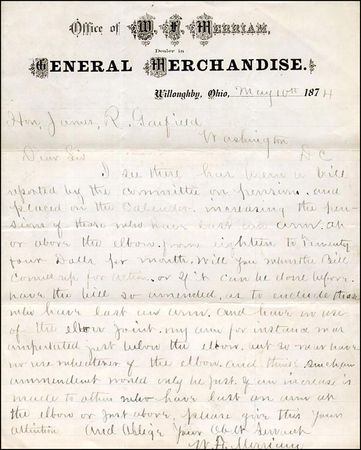 Office of W. F. Merriam,
Dealer in
General Merchandise.
Willoughby, Ohio, May 10th 1874
Hon. James, R. Garfield
Washington
Dear Sir D C
I see there has been a bill
reported by the committee on pension. and
placed on the Calender. increasing the pen-
sions of those who have lost an arm. at
or above the elbow. from eighteen to twenty
four Dolls per month. Will you when the Bill
comes up for action. or if it can be done before.
have the bill so amended, as to include those
who have lost an arm. and have no use
of the elbow joint. my arm for instance was
amputated just below the elbow. but so near have
no use whatever of the elbow. and think such an
ammendment would only be just if an increase is
made to others who have lost an arm at
the elbow or just above. please give this your
attention and Oblige Your Obdt Servant
W. F. Merriam